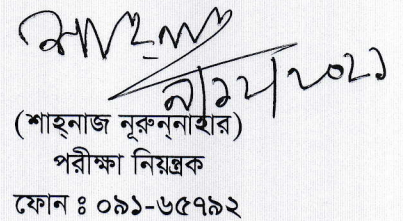 (শাহ্‌নাজ নূরুন্‌নাহার)
পরীক্ষা নিয়ন্ত্রক
ফোন ঃ ০৯১-৬৫৭৯২